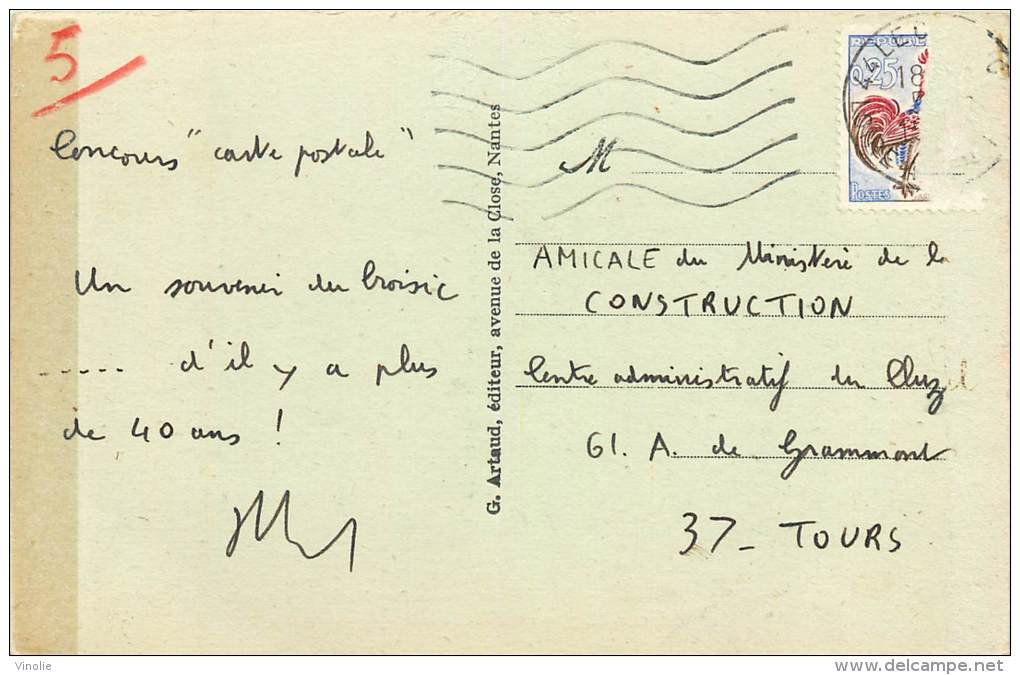 5
Concours "carte postale"
Un souvenir du Croisic
..... d'il y a plus
de 40 ans !
G. Artaud, éditeur, avenue de la Close, Nantes
REPUBL
0,25
POSTES
18
M
AMICALE du Ministère de la
CONSTRUCTION
Centre administratif du Cluzel
61. A. de Grammont
37_ TOURS
Vinolie
http://www.delcampe.net